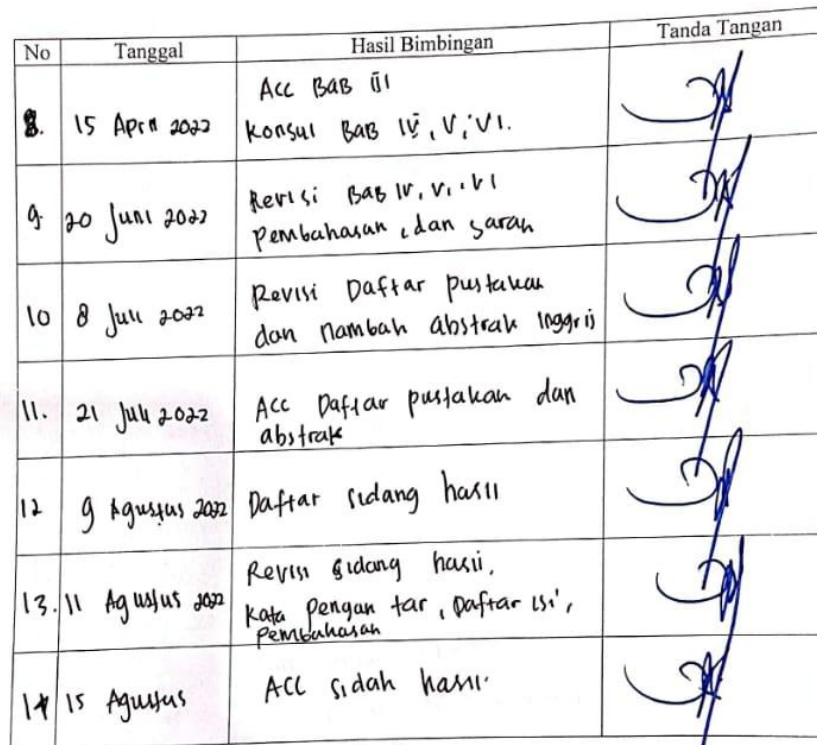 No Tanggal Hasil Bimbingan Tanda Tangan
8. 15 April 2022 Acc BAB III
Konsul BAB IV, V, VI.
9. 20 Juni 2022 Revisi BAB IV, V, VI
Pembahasan, dan saran
10 8 Juli 2022 Revisi Daftar pustakan
dan nambah abstrak Inggris
11. 21 Juli 2022 Acc Daftar pustakan dan
abstrak
12 9 Agustus 2022 Daftar sidang hasil
13. 11 Agustus 2022 Revisi sidang hasil,
Kata Pengantar, Daftar isi,
Pembahasan
14 15 Agustus ACC sidah hasil.